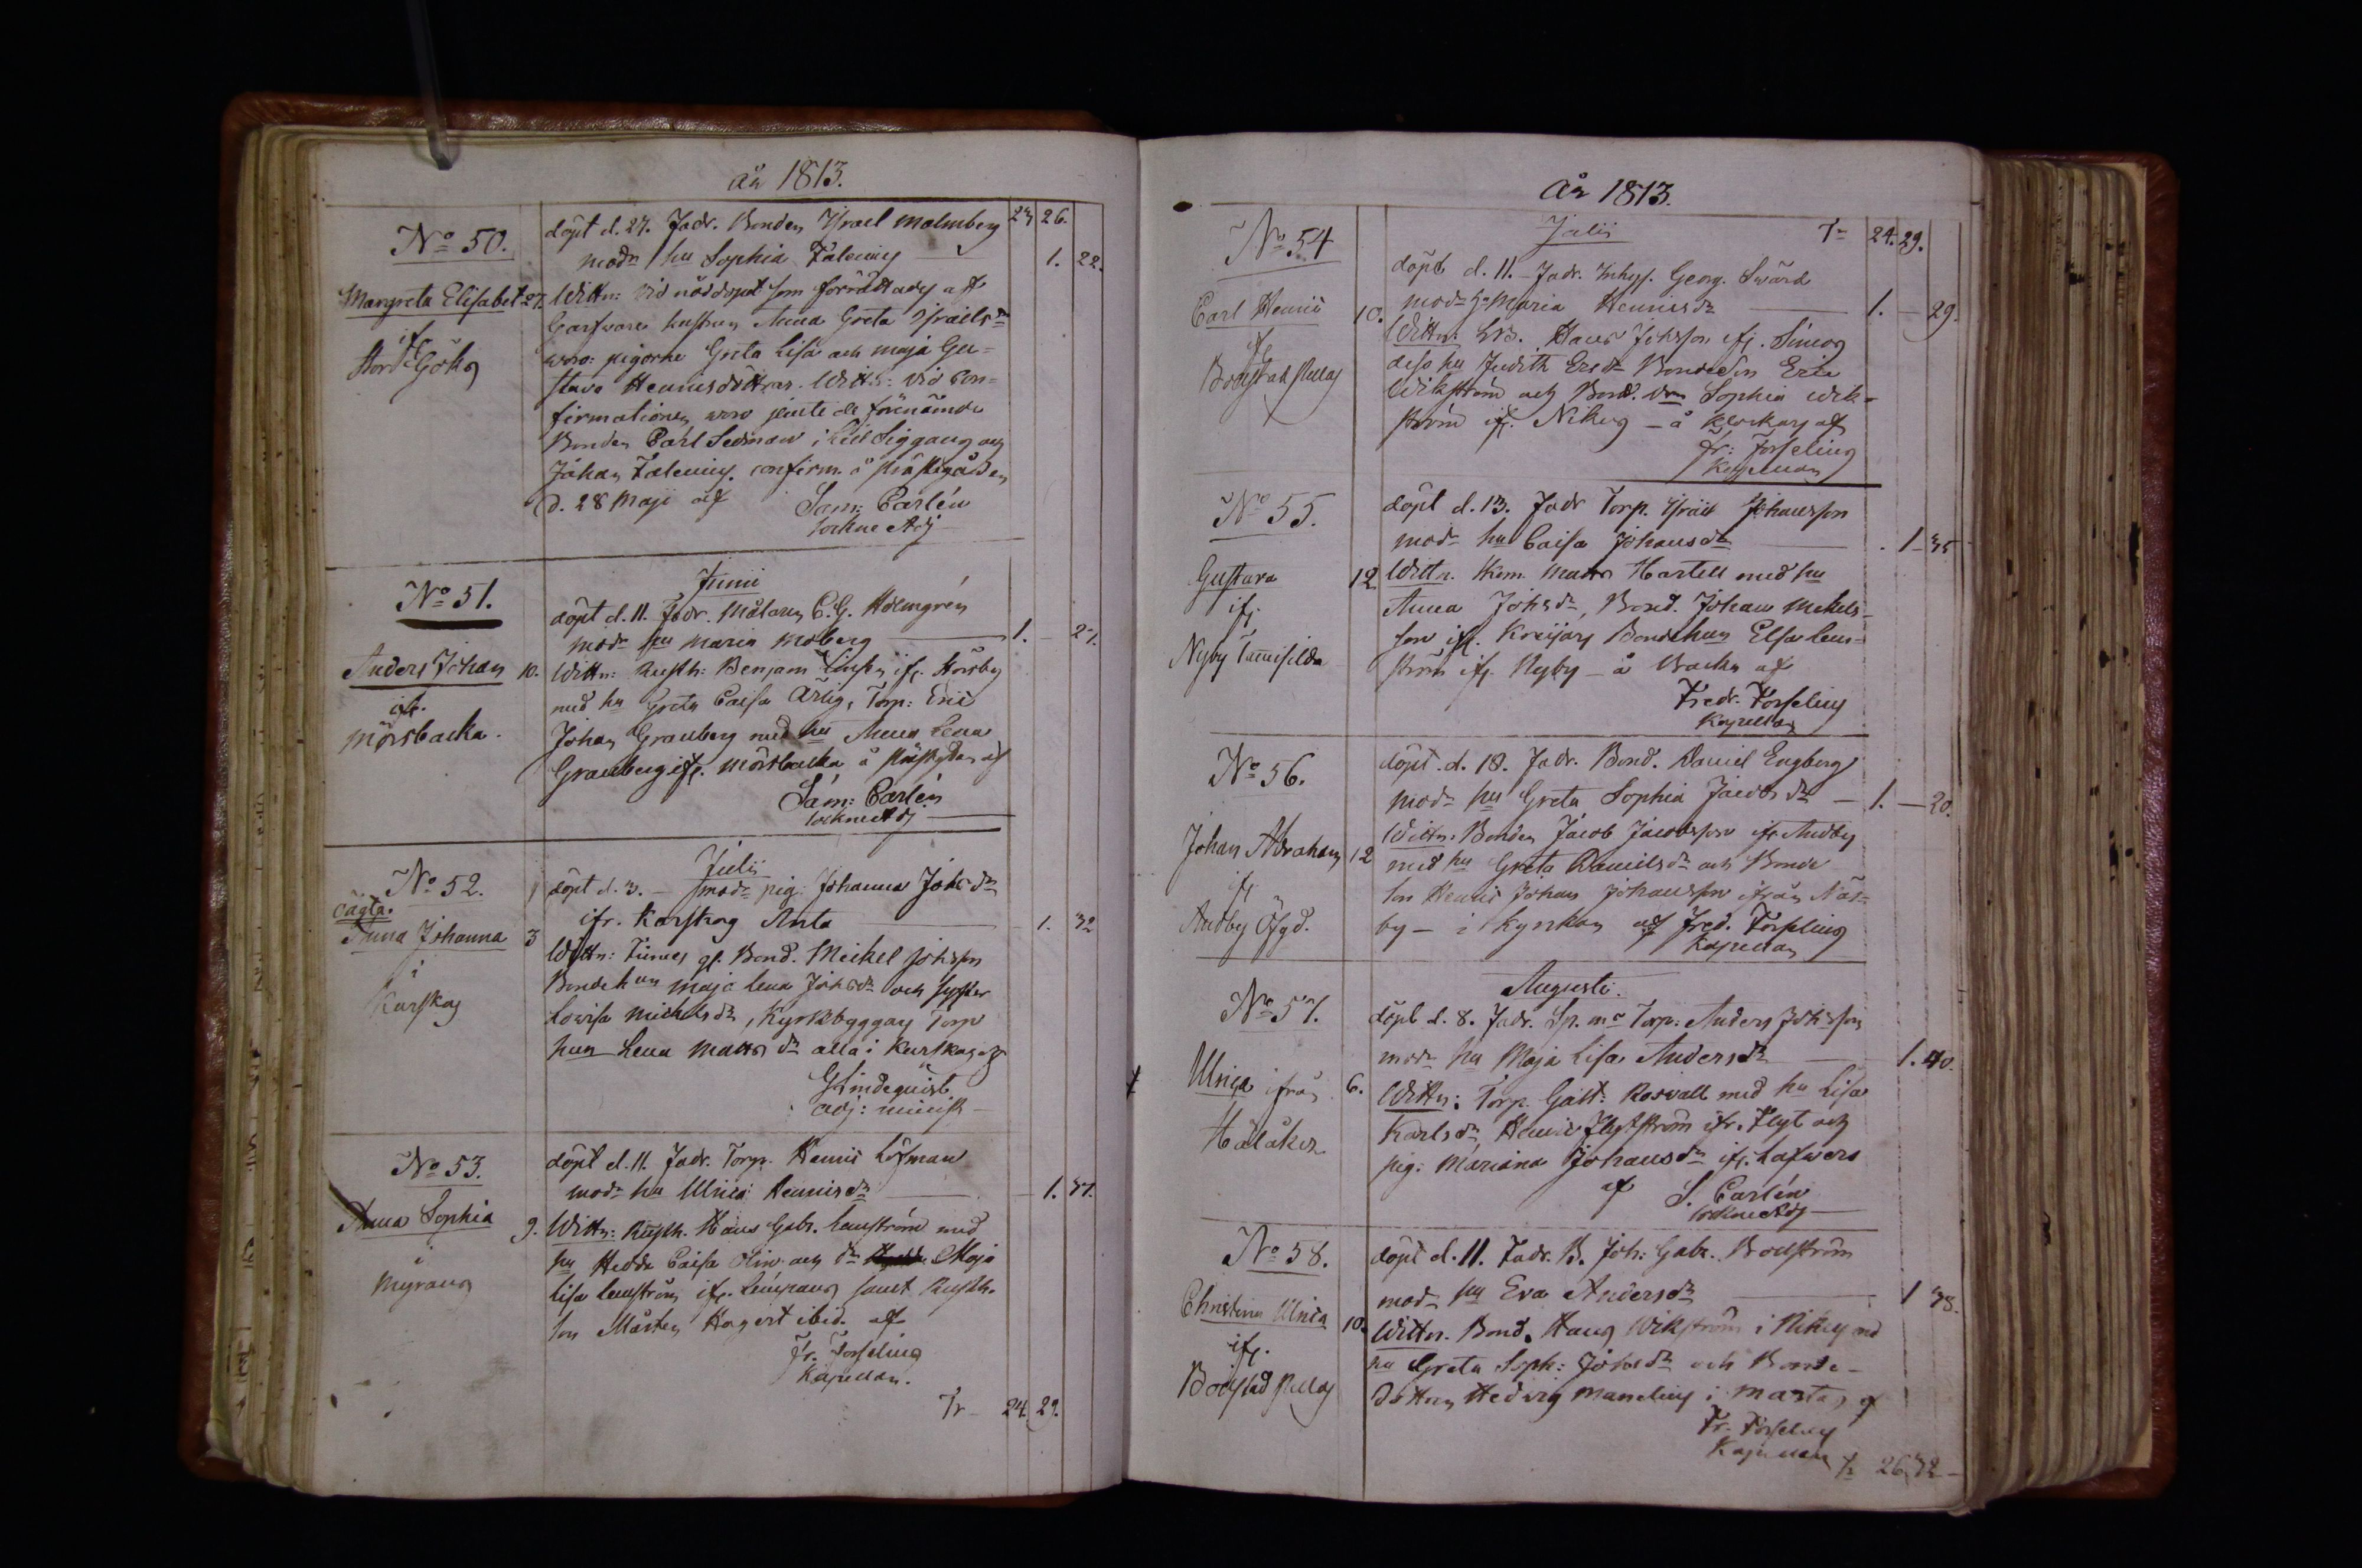 år 1813.
No 50.
Margreta Elisabet 27.
if
Stor Göks
döpt d. 27. Fadr. Bonden Israel Malmberg 23 26.
modr hu Sophia Faleniy 1. 22.
Wittn: vid nöddopet som förrättades af
Garfware hustrun Anna Greta Israelsdr
woro: pigorne Greta Lisa och Maja Gu=
stava Henricsdöttrar. Wittn: vid con=
firmationen woro jemte de förenämde
Bonden Carl Sedman i
Johan Faleniy. confirm. å prästgården
d. 28 Maji af Sam: Carlén
Sockne Adj
No 51.
Anders Johan 10.
ifr.
Mörsbacka.
Junii
döpt d. 11. Fadr. Målaren C. G. Holmgrén
modr hu Maria Moberg 1. — 27.
Wittn: Rusth: Benjam ifr. Störsby
med hu Greta Caisa Ärlig, Torp: Eric
Johan Granberg med hu Anna Lena
Granberg ifr. Mörsbacka å af
Sam: Carlén
Sockne Adj
No 52.
oägta.
Anna Johanna 3
i
Karskog
Julii
döpt d. 3. — modr pig: Johanna Johsdr
ifr. Karskog Anta 1. 32
Wittn: Bond. Mickel Johsson
Bondehun Maja Lena Johsdr och syster
Lovisa Michelsdr, Kyrkbyggan Torp
hun Lena Mattsdr alla i Karskog af
G Lindequist
adj: minist
No 53.
Anna Sophia 9.
i
Myrans
döpt d. 11. Fadr. Torp. Henric Löfman
modr hu Ulrica Henricsdr 1. 37.
Wittn: Rusth. Hans Gabr. Lenström med
hu Hedda Caisa Olin och dr Maja
Lisa Lenström ifr. samt Rusth.
son Mårten Hagert ibid. af
Fr. Forseliug
Kapellan.
Tr 24. 29.
År 1813.
Julii Tr 24. 29.
No 54
Carl Henric 10.
ifr
döpt d. 11. Fadr. Inhys. Georg. Swärd
modr hu Maria Henricsdr 1. — 29.
Wittn: Hans Johsson ifr.
dess hu Judith Ersdr Bondeson Eric
Wikström och Bond. dr Sophia Wik=
ström ifr. Nikus — å af
Fr: Forseliug
Kapellan
No 55.
Gustava 12
ifr.
Nyby
döpt d. 13. Fadr Torp. Israel Johansson
modr hu Caisa Johansdr 1 — 35
Wittn. Hem. Matts Hartell med hu
Anna Johsdr, Bond. Johan Mickels=
son ifr. Bondehun Elsa Len=
ström ifr. Nyby — å Backa af
Fredr. Forseliug
Kapellan
No 56.
Johan Abraham 12
ifr
Andby Öfgd.
döpt d. 18. Fadr. Bond. Daniel Engberg
modr hu Greta Sophia Jacobsdr — 1. — 20.
Wittn. Bonden Jacob Jacobsson ifr Andby
med hu Greta Danielsdr och Bonde
son Henric Johan Johansson ifrån Näs=
by — i kyrkan af Fred. Forseliug
Kapellan
No 57.
Ulrica ifrån 6.
Hålåker
Augusti.
döpt d. 8. Fadr. Torp: Anders Johsson
modr hu Maja Lisa Andersdr 1. 40.
Wittn: Torp. Gust: Rosvall med hu Lisa
Karlsdr, Henric Flytström ifr. Flyt och
pig: Mariana Johansdr ifr. Lafwers
af S. Carlén
Sockne Adj
No 58.
Christina Ulrica 10.
ifr.
döpt d. 11. Fadr. B. Joh: Gabr. Bollström
modr hu Eva Andersdr 1 38.
Wittn. Bond. Hans Wikström i Nikus med
hu Greta Soph: Johsdr och Bonde=
dottren Hedvig Maneliuy i af
Fr. Forseliug
Kapellan Tr 26. 32